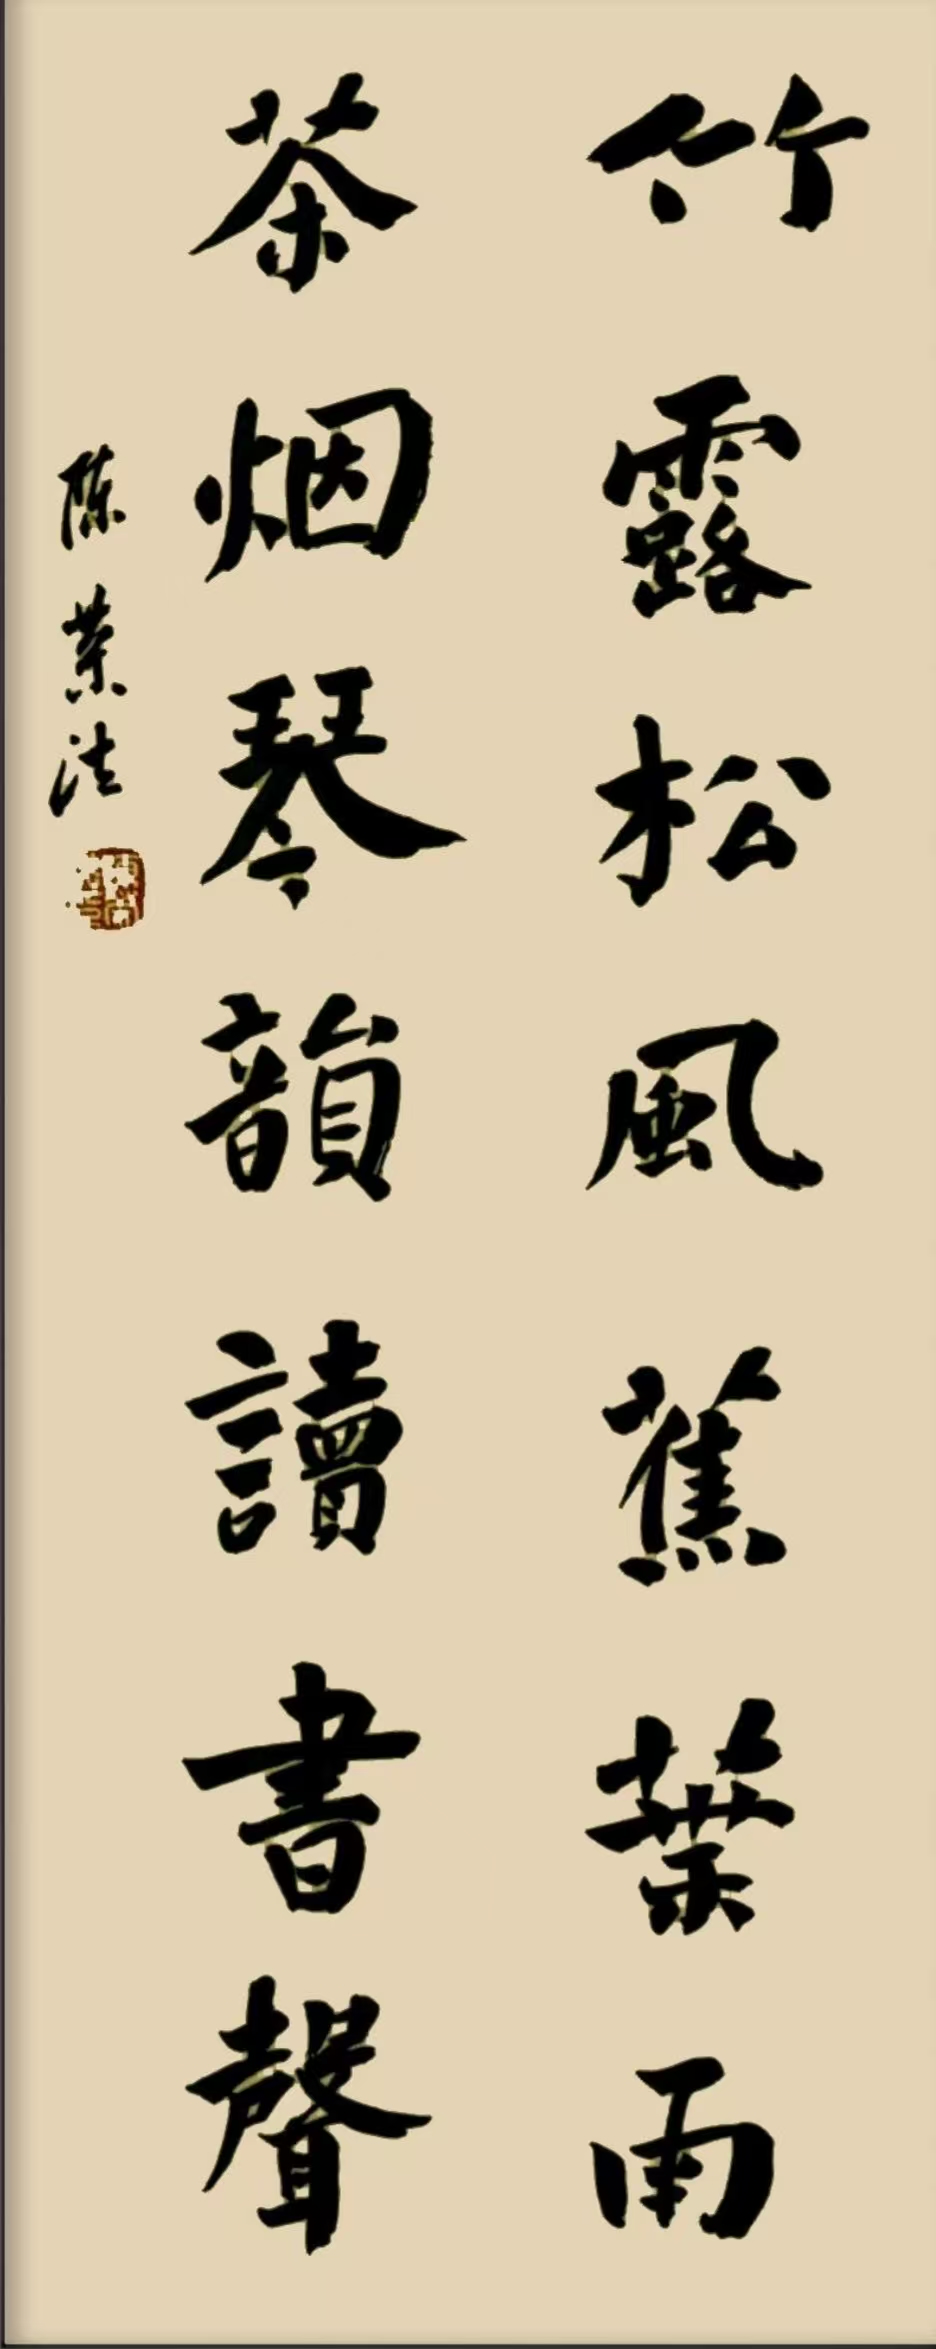 竹露松風蕉葉雨
茶烟琴韻讀書聲
陈業法